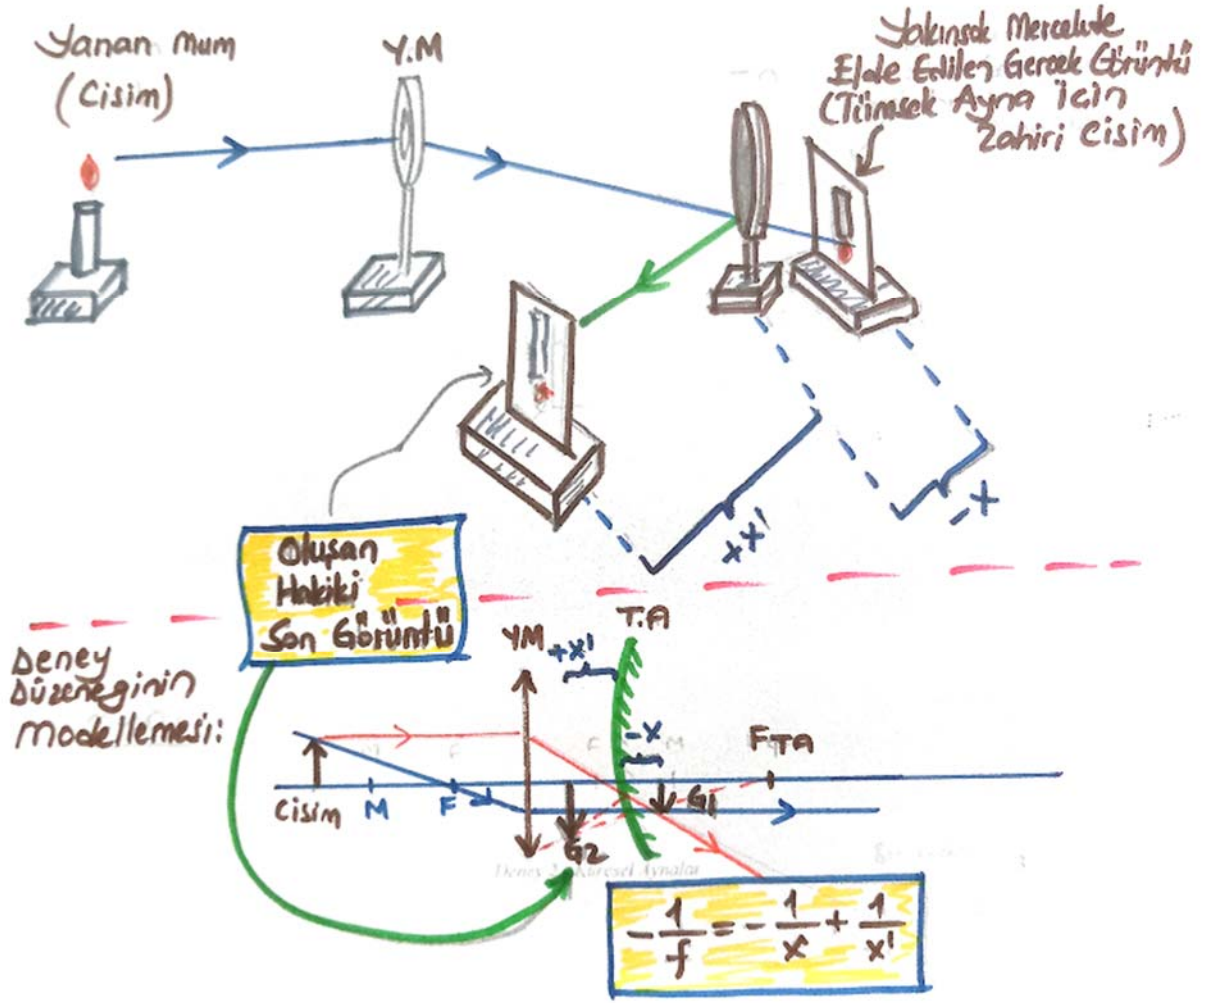 Yanan Mum
(Cisim)
Y.M
Yakınsak Mercekte
Elde Edilen Gerçek Görüntü
(Tümsek Ayna için
Zahiri Cisim)
-x
+x'
Oluşan
Hakiki
Son Görüntü
Deney
Düzeneğinin
Modellemesi:
YM
+x'
T.A
-x
FTA
Cisim
M
F
G1
G2
Deney 2: Küresel Aynalar
-1/f = -1/x + 1/x'